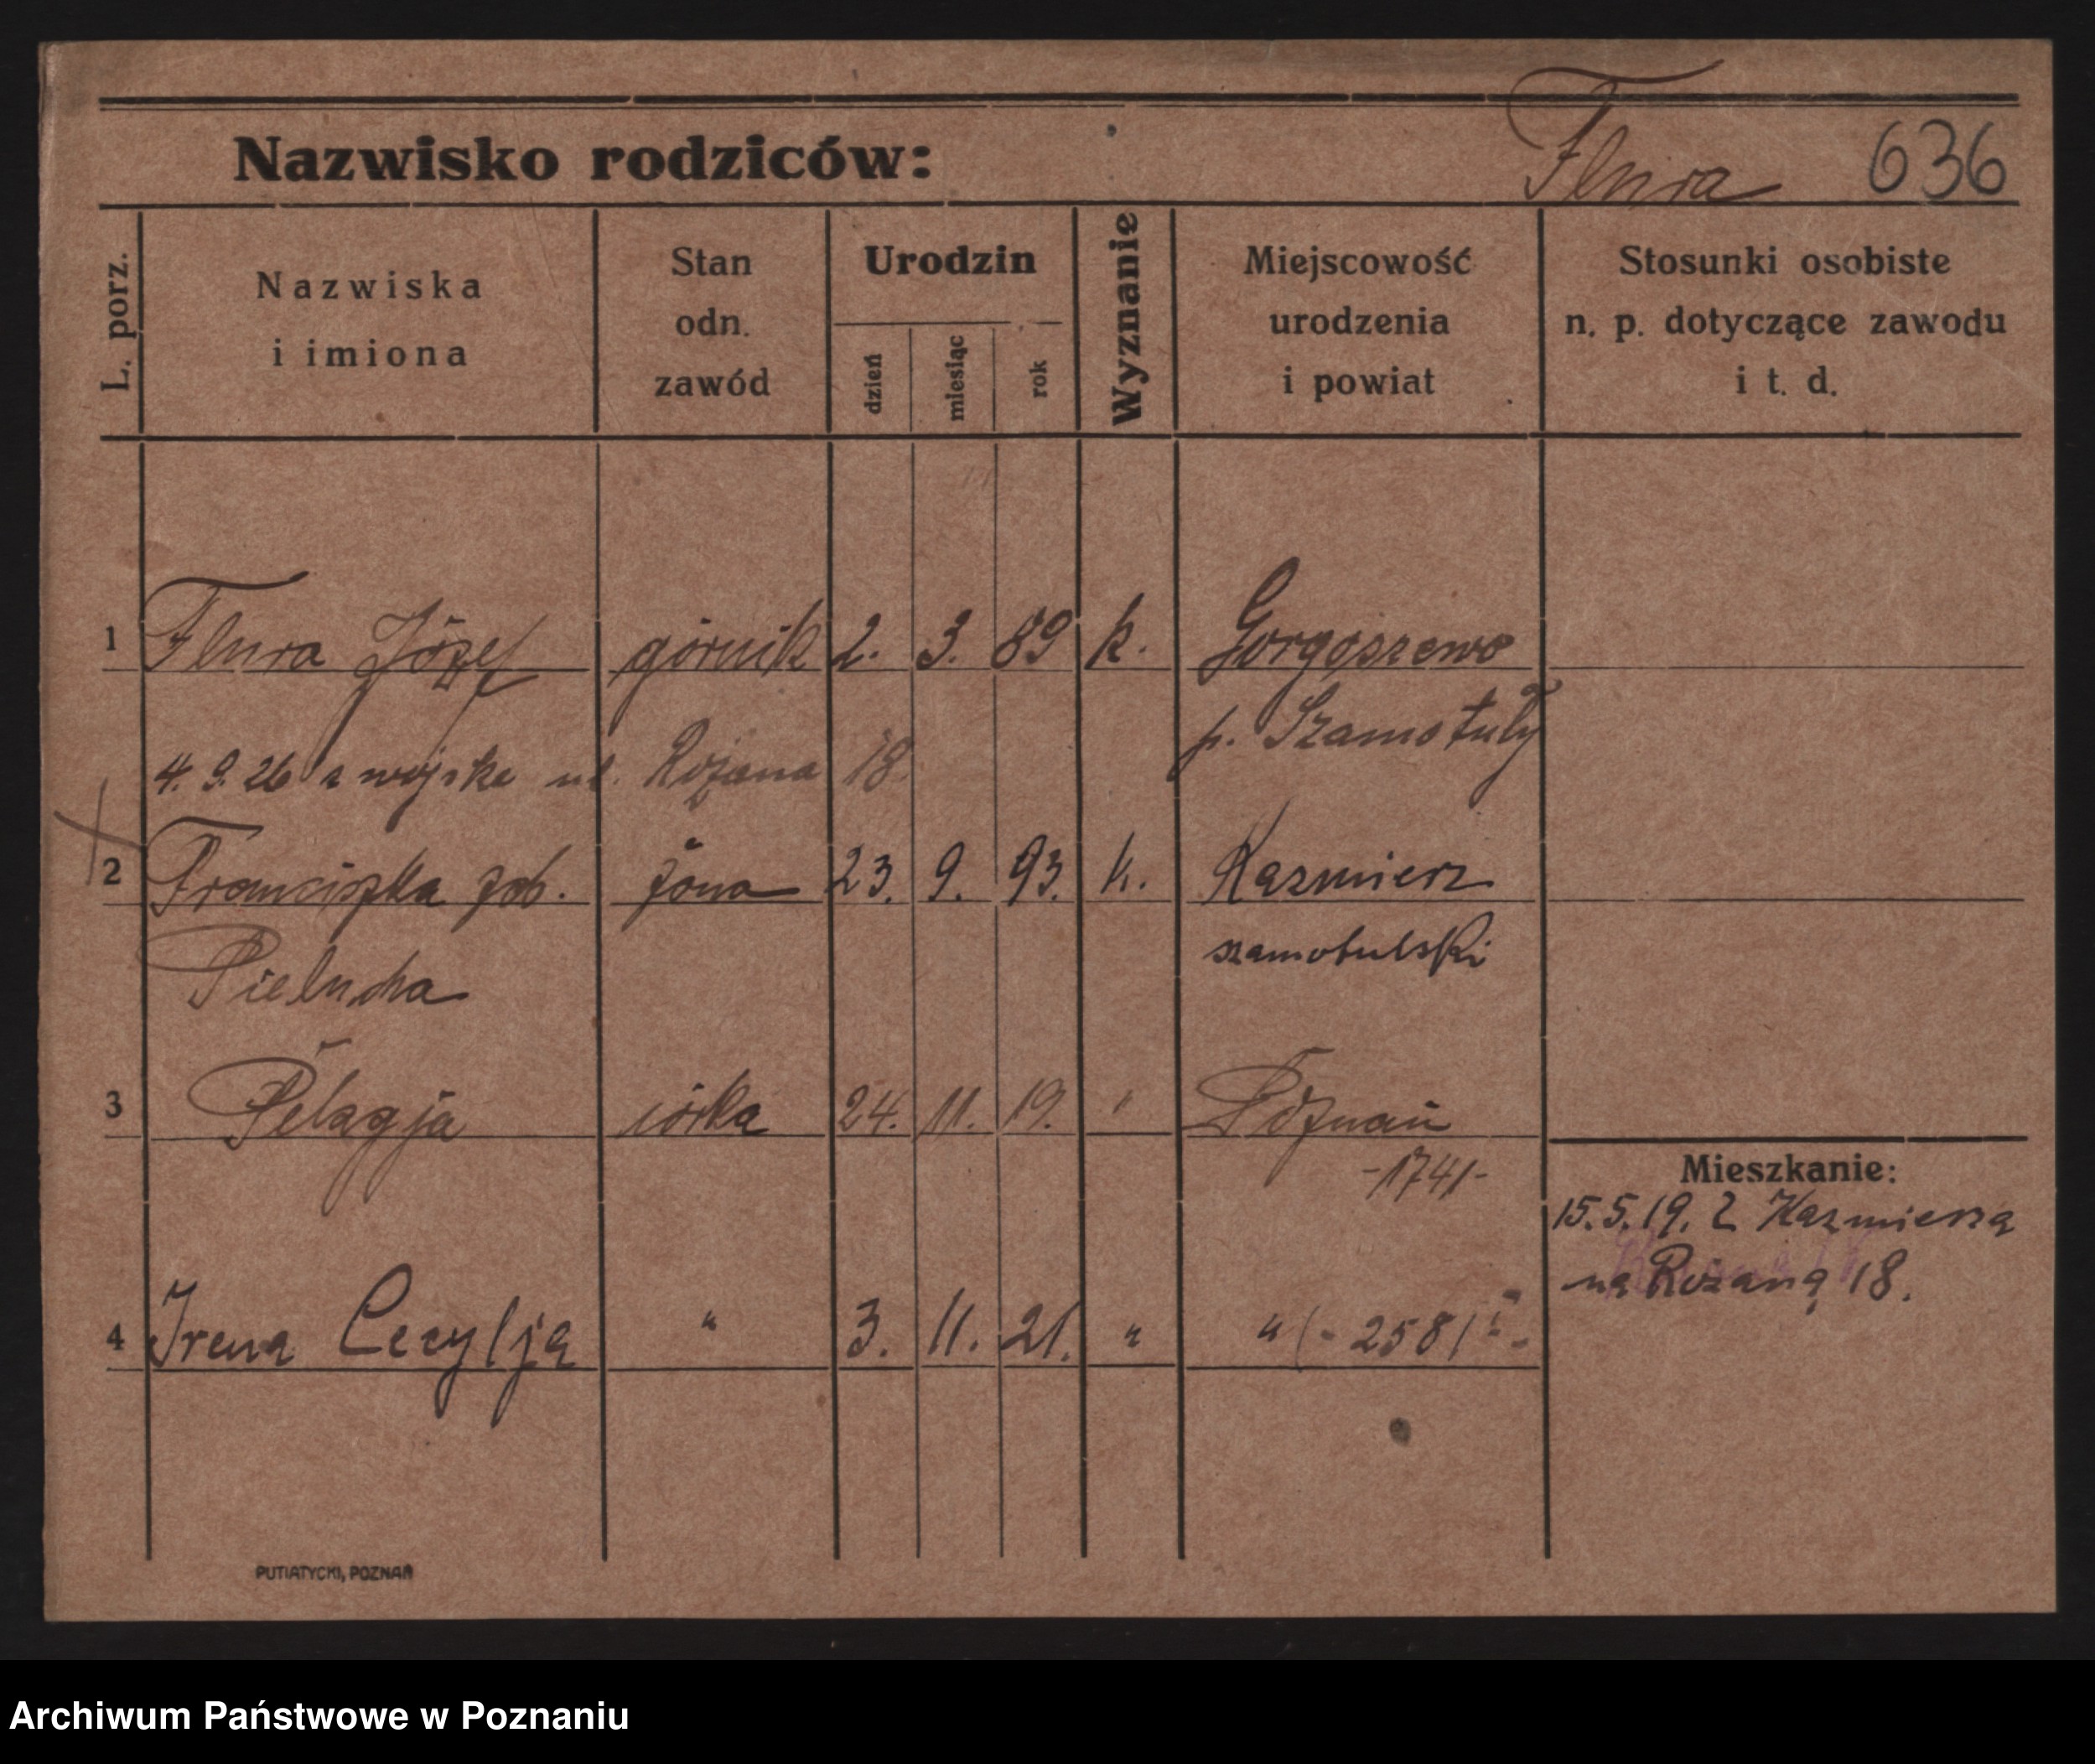 Nazwisko rodziców: Flura 636
L. porz.
Nazwiska i imiona
Stan odn. zawód
Urodzin
dzień miesiąc rok
Wyznanie
Miejscowość urodzenia i powiat
Stosunki osobiste n. p. dotyczące zawodu i t. d.
1 Flura Józef górnik 2. 3. 89 k. Gorgoszewo
p. Szamotuły
4. 9. 26 z wojska ul. Różana 18
2 Franciszka żona 23. 9. 93. k. Kaźmierz
szamotulski
Pielucha
3 Pelagja córka 24. 11. 19. " Poznań
-1741-
Mieszkanie:
15.5.19. Z Kaźmierza
na Różaną 18.
4 Irena Cecylja " 3. 11. 21. " " 2581
PUTIATYCKI, POZNAŃ
Archiwum Państwowe w Poznaniu